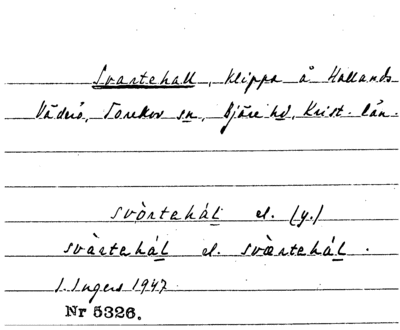 Svartehall, klippa å Hallands
Väderö, Torekov sn, Bjäre hd, Krist. län.
svòrtehál el. (y.)
svàrtehál el. svæ̀rtehál.
I. Ingers 1947
Nr 5326.